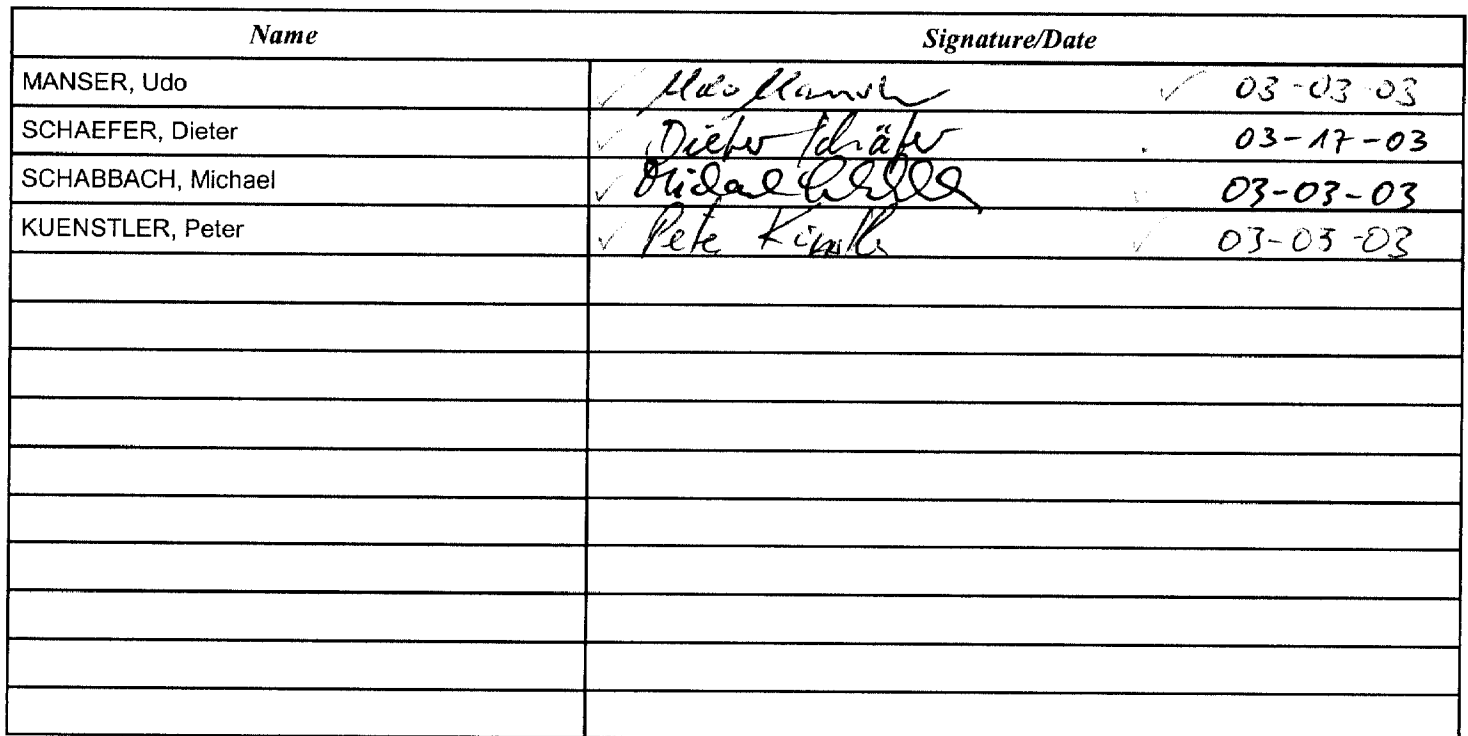 Name Signature/Date
MANSER, Udo Udo Manser 03-03-03
SCHAEFER, Dieter Dieter Schäfer 03-17-03
SCHABBACH, Michael Michael 03-03-03
KUENSTLER, Peter Peter 03-03-03